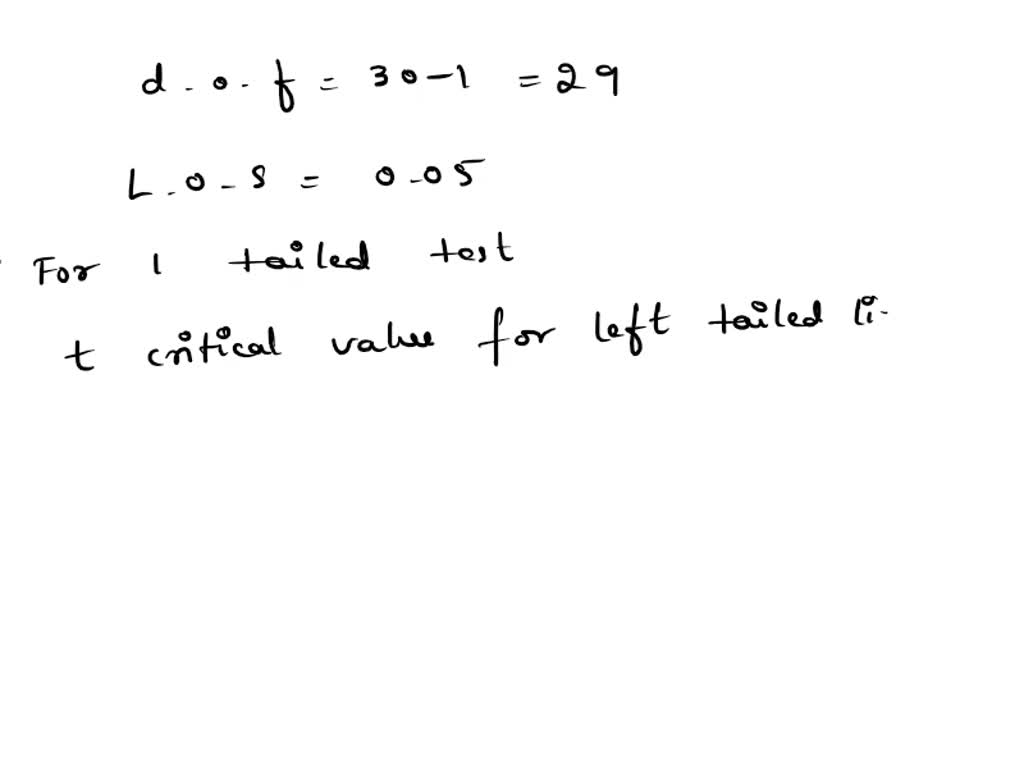 d.o.f = 30-1 = 29
L.O.S = 0.05
For 1 tailed test
t critical value for left tailed li.